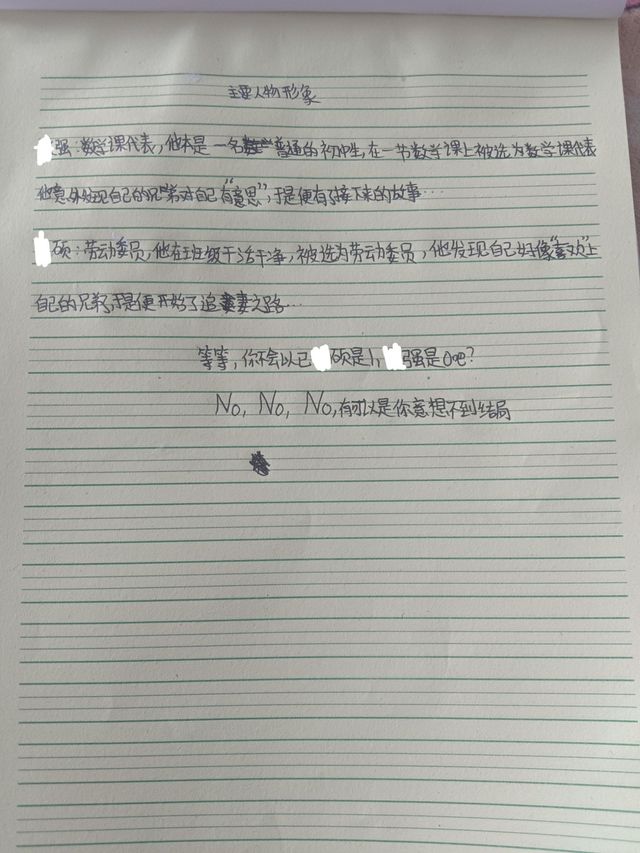 主要人物形象
强：数学课代表，他本是一名普通的初中生，在一节数学课上被选为数学课代表
他意外发现自己的兄弟对自己有“意思”，于是便有了接下来的故事…
硕：劳动委员，他在班级干活干净，被选为劳动委员，他发现自己好像“喜欢”上
自己的兄弟，于是便开始了追妻之路…
等等，你不会以已硕是1，强是0吧？
No, No, No, 有可以是你意想不到结局